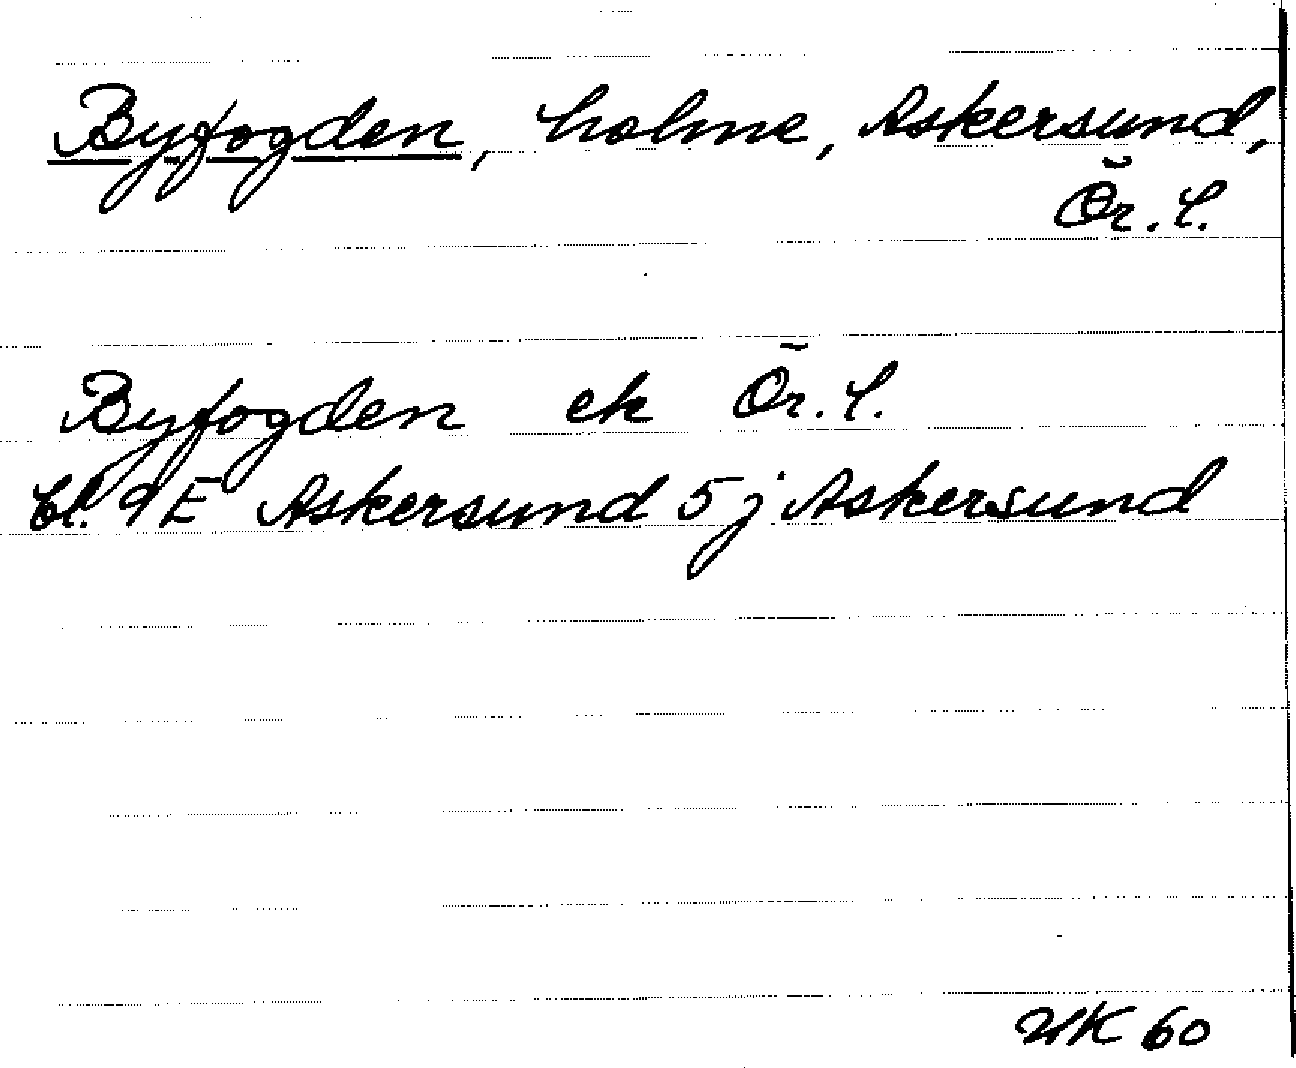 Byfogden, holme, Askersund,
Ör. l.
Byfogden ek Ör. l.
bl. 9E Askersund 5j Askersund
UK 60